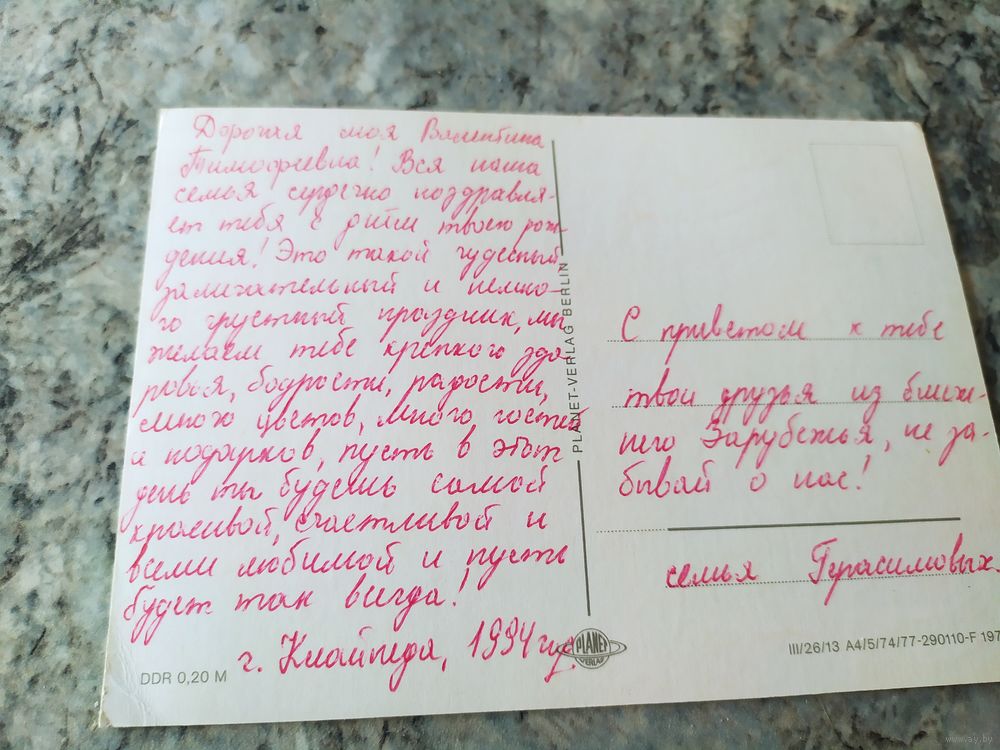 Дорогая моя Валентина
Тимофеевна! Вся наша
семья сердечно поздравля-
ет тебя с днём твоего рож-
дения! Это такой чудесный
замечательный и немно-
го грустный праздник, мы
желаем тебе крепкого здо-
ровья, бодрости, радости,
много цветов, много гостей
и подарков, пусть в этот
день ты будешь самой
красивой, счастливой и
всеми любимой и пусть
будет так всегда!
г. Клайпеда, 1994 год.
DDR 0,20 M
PLANET-VERLAG BERLIN
PLANET
VERLAG
С приветом к тебе
твои друзья из ближ-
него Зарубежья, не за-
бывай о нас!
семья Герасимовых.
III/26/13 A4/5/74/77-290110-F 197
www.ay.by